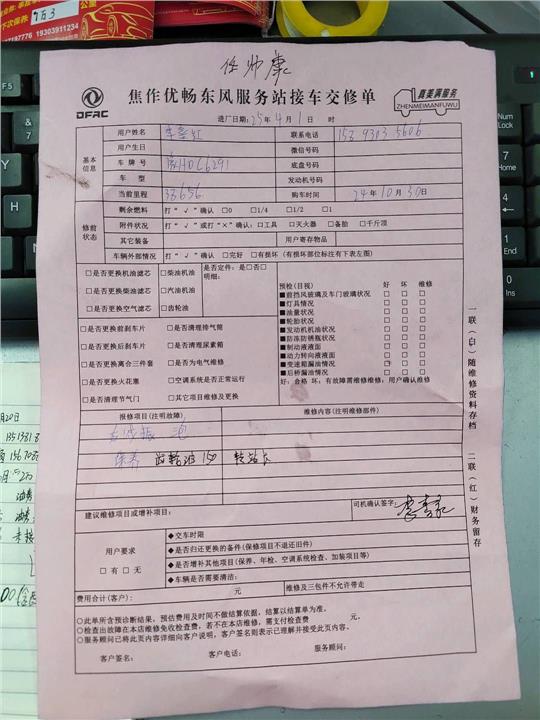 公里
下次保养
19303911234
任帅康
DFAC
焦作优畅东风服务站接车交修单
真美满服务
ZHENMEIMANFUWU
进厂日期:25年4月1日 时
基本信息
用户姓名
联系电话
用户生日
微信号码
车牌号
底盘号码
车型
发动机号码
当前里程 33656
购车时间 24年10月30日
修前状态
剩余燃料 打“√”确认 □0 □1/4 □1/2 □1
附件状况 打“√”或打“×”确认:□工具 □灭火器 □备胎 □千斤顶
其它装备
用户寄存物品
车辆外部情况 打“√”确认 □完好 □有损坏(有损坏部位标注有下表左图)
□是否更换机油滤芯 □柴油机油
□是否更换柴油滤芯 □汽油机油
□是否更换空气滤芯 □齿轮油
是否定件:是□否□
明细:
□是否更换前刹车片 □是否清理排气筒
□是否更换后刹车片 □是否清理尿素箱
□是否更换离合三件套 □是否为电气维修
□是否更换火花塞 □空调系统是否正常运行
□是否清理节气门 □其它项目维修及更换
预检(目视) 好 坏 维修
■前挡风玻璃及车门玻璃状况 □ □ □
■灯具情况 □ □ □
■油量状况 □ □ □
■轮胎状况 □ □ □
■发动机机油状况 □ □ □
■防冻防锈瓶状况 □ □ □
■制动液液面 □ □ □
■动力转向液液面 □ □ □
■变速箱漏油情况 □ □ □
■后桥漏油情况 □ □ □
好:合格 坏:有故障需维修维修:用户确认维修
报修项目(注明故障)
维修内容(注明维修部件)
保养 齿轮油150 转站长
建议维修项目或增补项目:
司机确认签字:
用户要求
□有 □无
◆交车时限
◆是否归还更换的备件(保修项目不退还旧件)
◆是否增补其他项目(保养、年检、空调系统检查、加装项目等)
◆车辆是否需要清洁:
费用合计(客户): 元
维修及三包件不允许带走
○此单所含预诊断结果,预估费用及时间不做结算依据,结算以结算单为准。
○检查出故障在本店维修免收检查费,若不在本店维修,需支付检查费 元。
○服务顾问已将此页内容详细向客户说明,客户签名则表示已理解并接受此页内容。
客户签名: 客户电话: 服务顾问:
一联(白)随维修资料存档
二联(红)财务留存